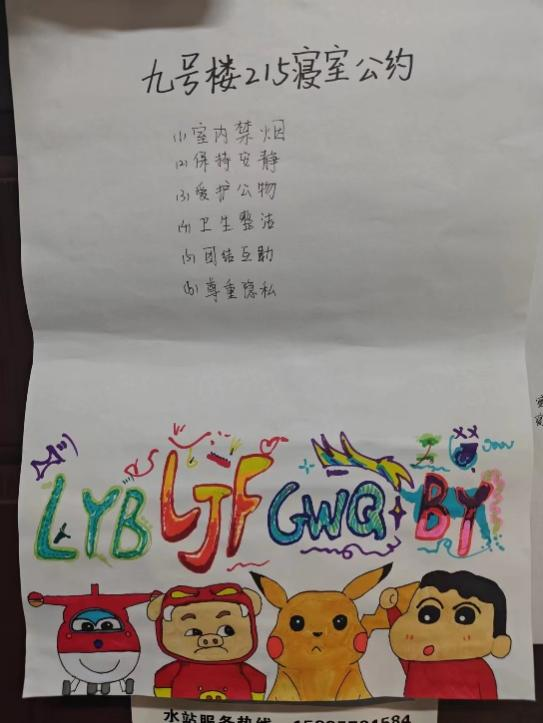 九号楼215寝室公约
(1)室内禁烟
(2)保持安静
(3)爱护公物
(4)卫生整洁
(5)团结互助
(6)尊重隐私
LYB LJF GWQ BY
水站服务热线